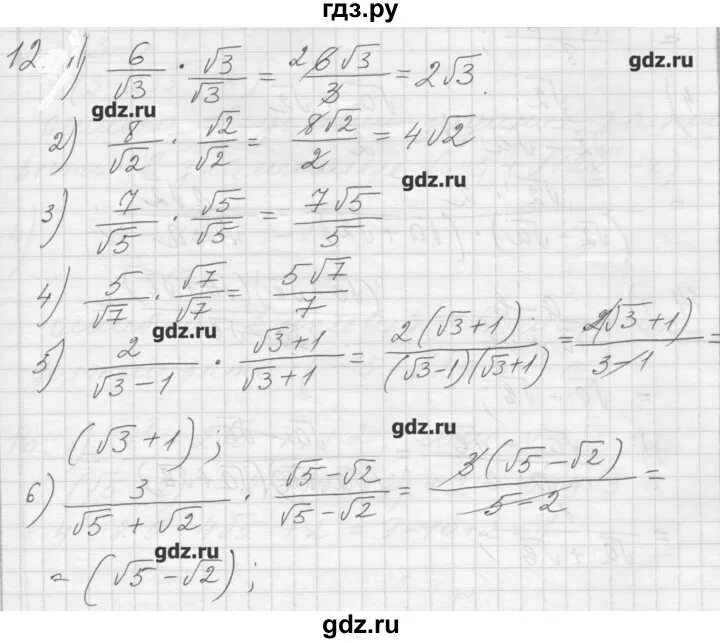 гдз.ру
12. 1) 6/√3 · √3/√3 = 2 6√3/3 = 2√3.
gdz.ru
gdz.ru
2) 8/√2 · √2/√2 = 8√2/2 = 4√2
gdz.ru
3) 7/√5 · √5/√5 = 7√5/5
4) 5/√7 · √7/√7 = 5√7/7
gdz.ru
5) 2/(√3-1) · (√3+1)/(√3+1) = 2(√3+1)/((√3-1)(√3+1)) = 2(√3+1)/(3-1) =
(√3+1);
gdz.ru
6) 3/(√5+√2) · (√5-√2)/(√5-√2) = 3(√5-√2)/(5-2) =
gdz.ru
= (√5-√2);